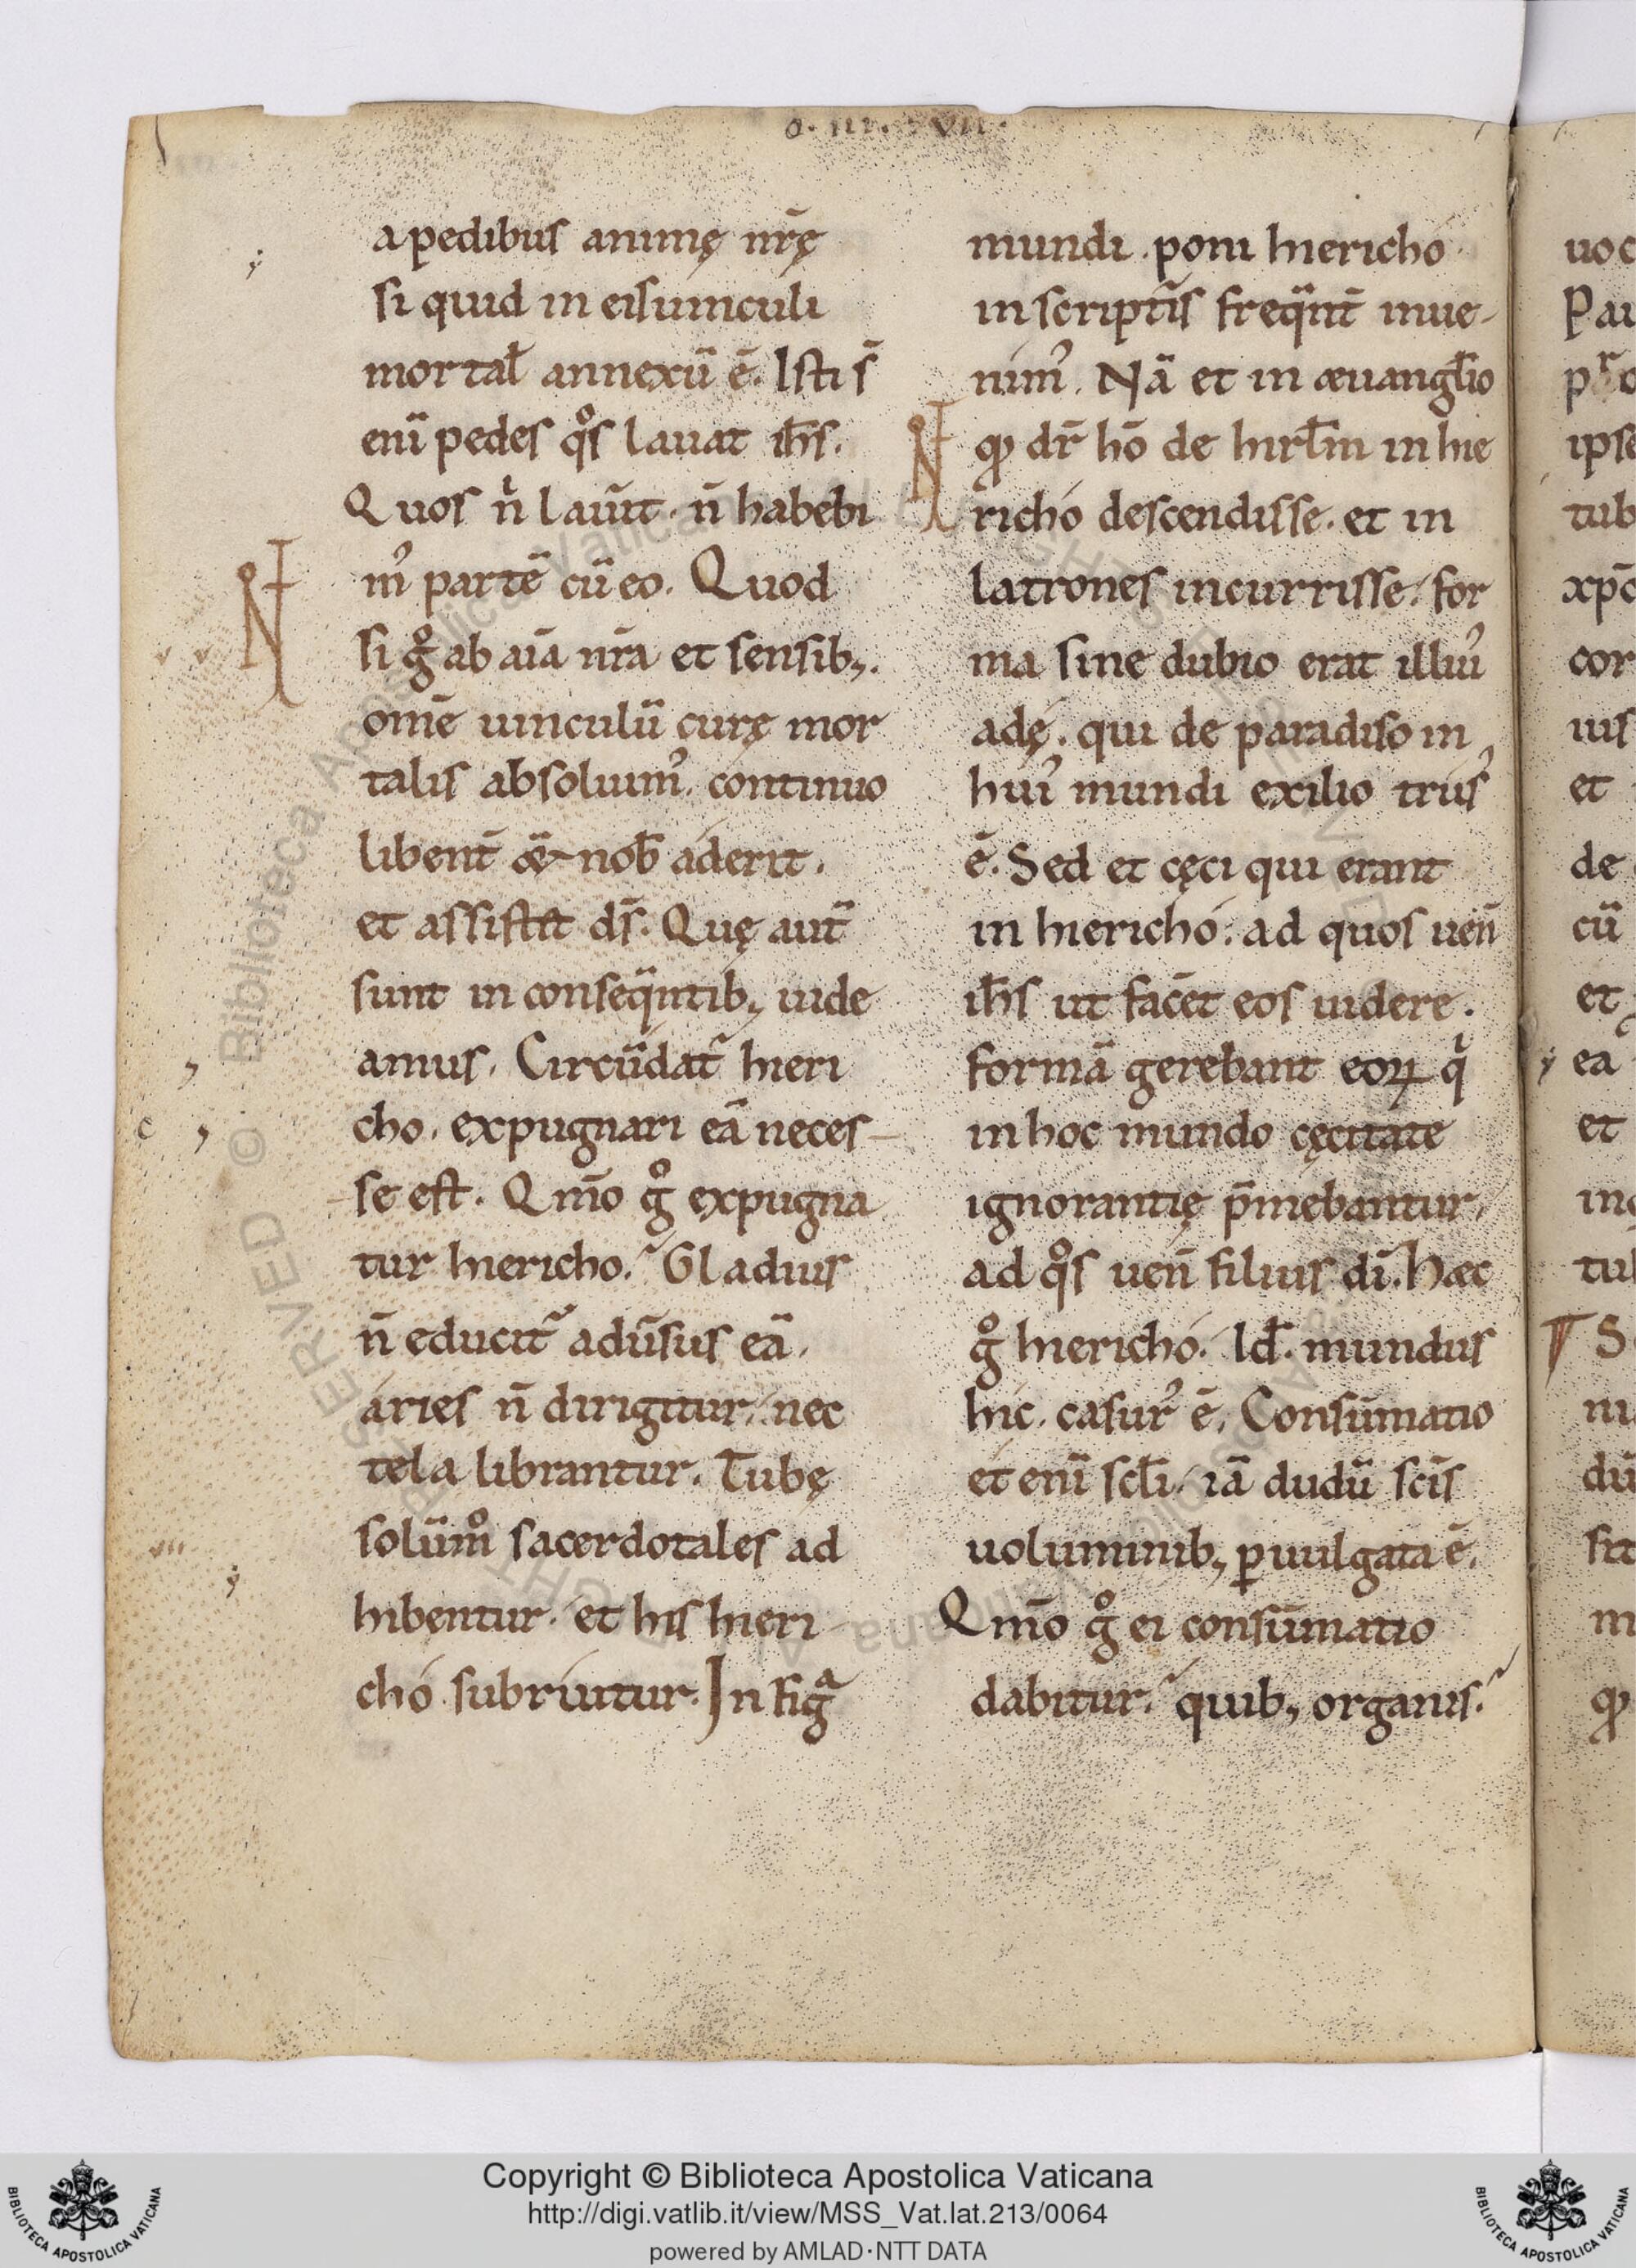 o. III. XVII.
a pedibus animę nr̄ę
si quid in eis uinculi
mortal̄ annexū ē. Isti s̄
enī pedes qͦs lauat ih̄s.
Quos n̄ lauūt. n̄ habebi
mꝰ partē cū eo. Quod
si gͦ ab aīa nr̄a et sensib;.
omē uinculū curę mor
talis absoluimꝰ. continuo
libent̄ & nob̄ aderit.
et assistit ds̄. Quę aut̄
sunt in conseqn̄tib; uide
amus. Circūdat᷑ hieri
cho. expugnari eā neces-
se est. Qm̄o gͦ expugna
tur hiericho. Gladius
n̄ educit᷑ adūsus eā.
aries n̄ dirigitur. nec
tela librantur. Tubę
solūmͦ sacerdotales ad
hibentur. et his hieri
cho subruitur. In figͣ
mundi. poni hiericho
in scriptis freqn̄t̄ inue-
nimꝰ. Nā et in æuangl̄io
qͦ dr̄ hō de hirl̄m in hie
richo descendisse. et in
latrones incurrisse. for
ma sine dubio erat illiuꝰ
adę. qui de paradiso in
huiꝰ mundi exilio trusꝰ
ē. Sed et cęci qui erant
in hiericho. ad quos uen̄
ih̄s ut facēt eos uidere.
formā gerebant eoꝝ qͥ
in hoc mundo cęcitate
ignorantię p̄mebantur.
ad qͦs uen̄ filius dī. Hæc
gͦ hiericho. Id̄. mundus
hic. casurꝰ ē. Consūmatio
et enī scl̄i. iā dudū scīs
uoluminib; ꝑuulgata ē.
Qm̄o gͦ ei consūmatio
dabitur. quib; organis.
uoc
Pau
ipse
tub
xp̄o
cor
uis
et
de
cū
et
ea
et
Copyright © Biblioteca Apostolica Vaticana
http://digi.vatlib.it/view/MSS_Vat.lat.213/0064
powered by AMLAD·NTT DATA
BIBLIOTECA APOSTOLICA VATICANA
BIBLIOTECA APOSTOLICA VATICANA